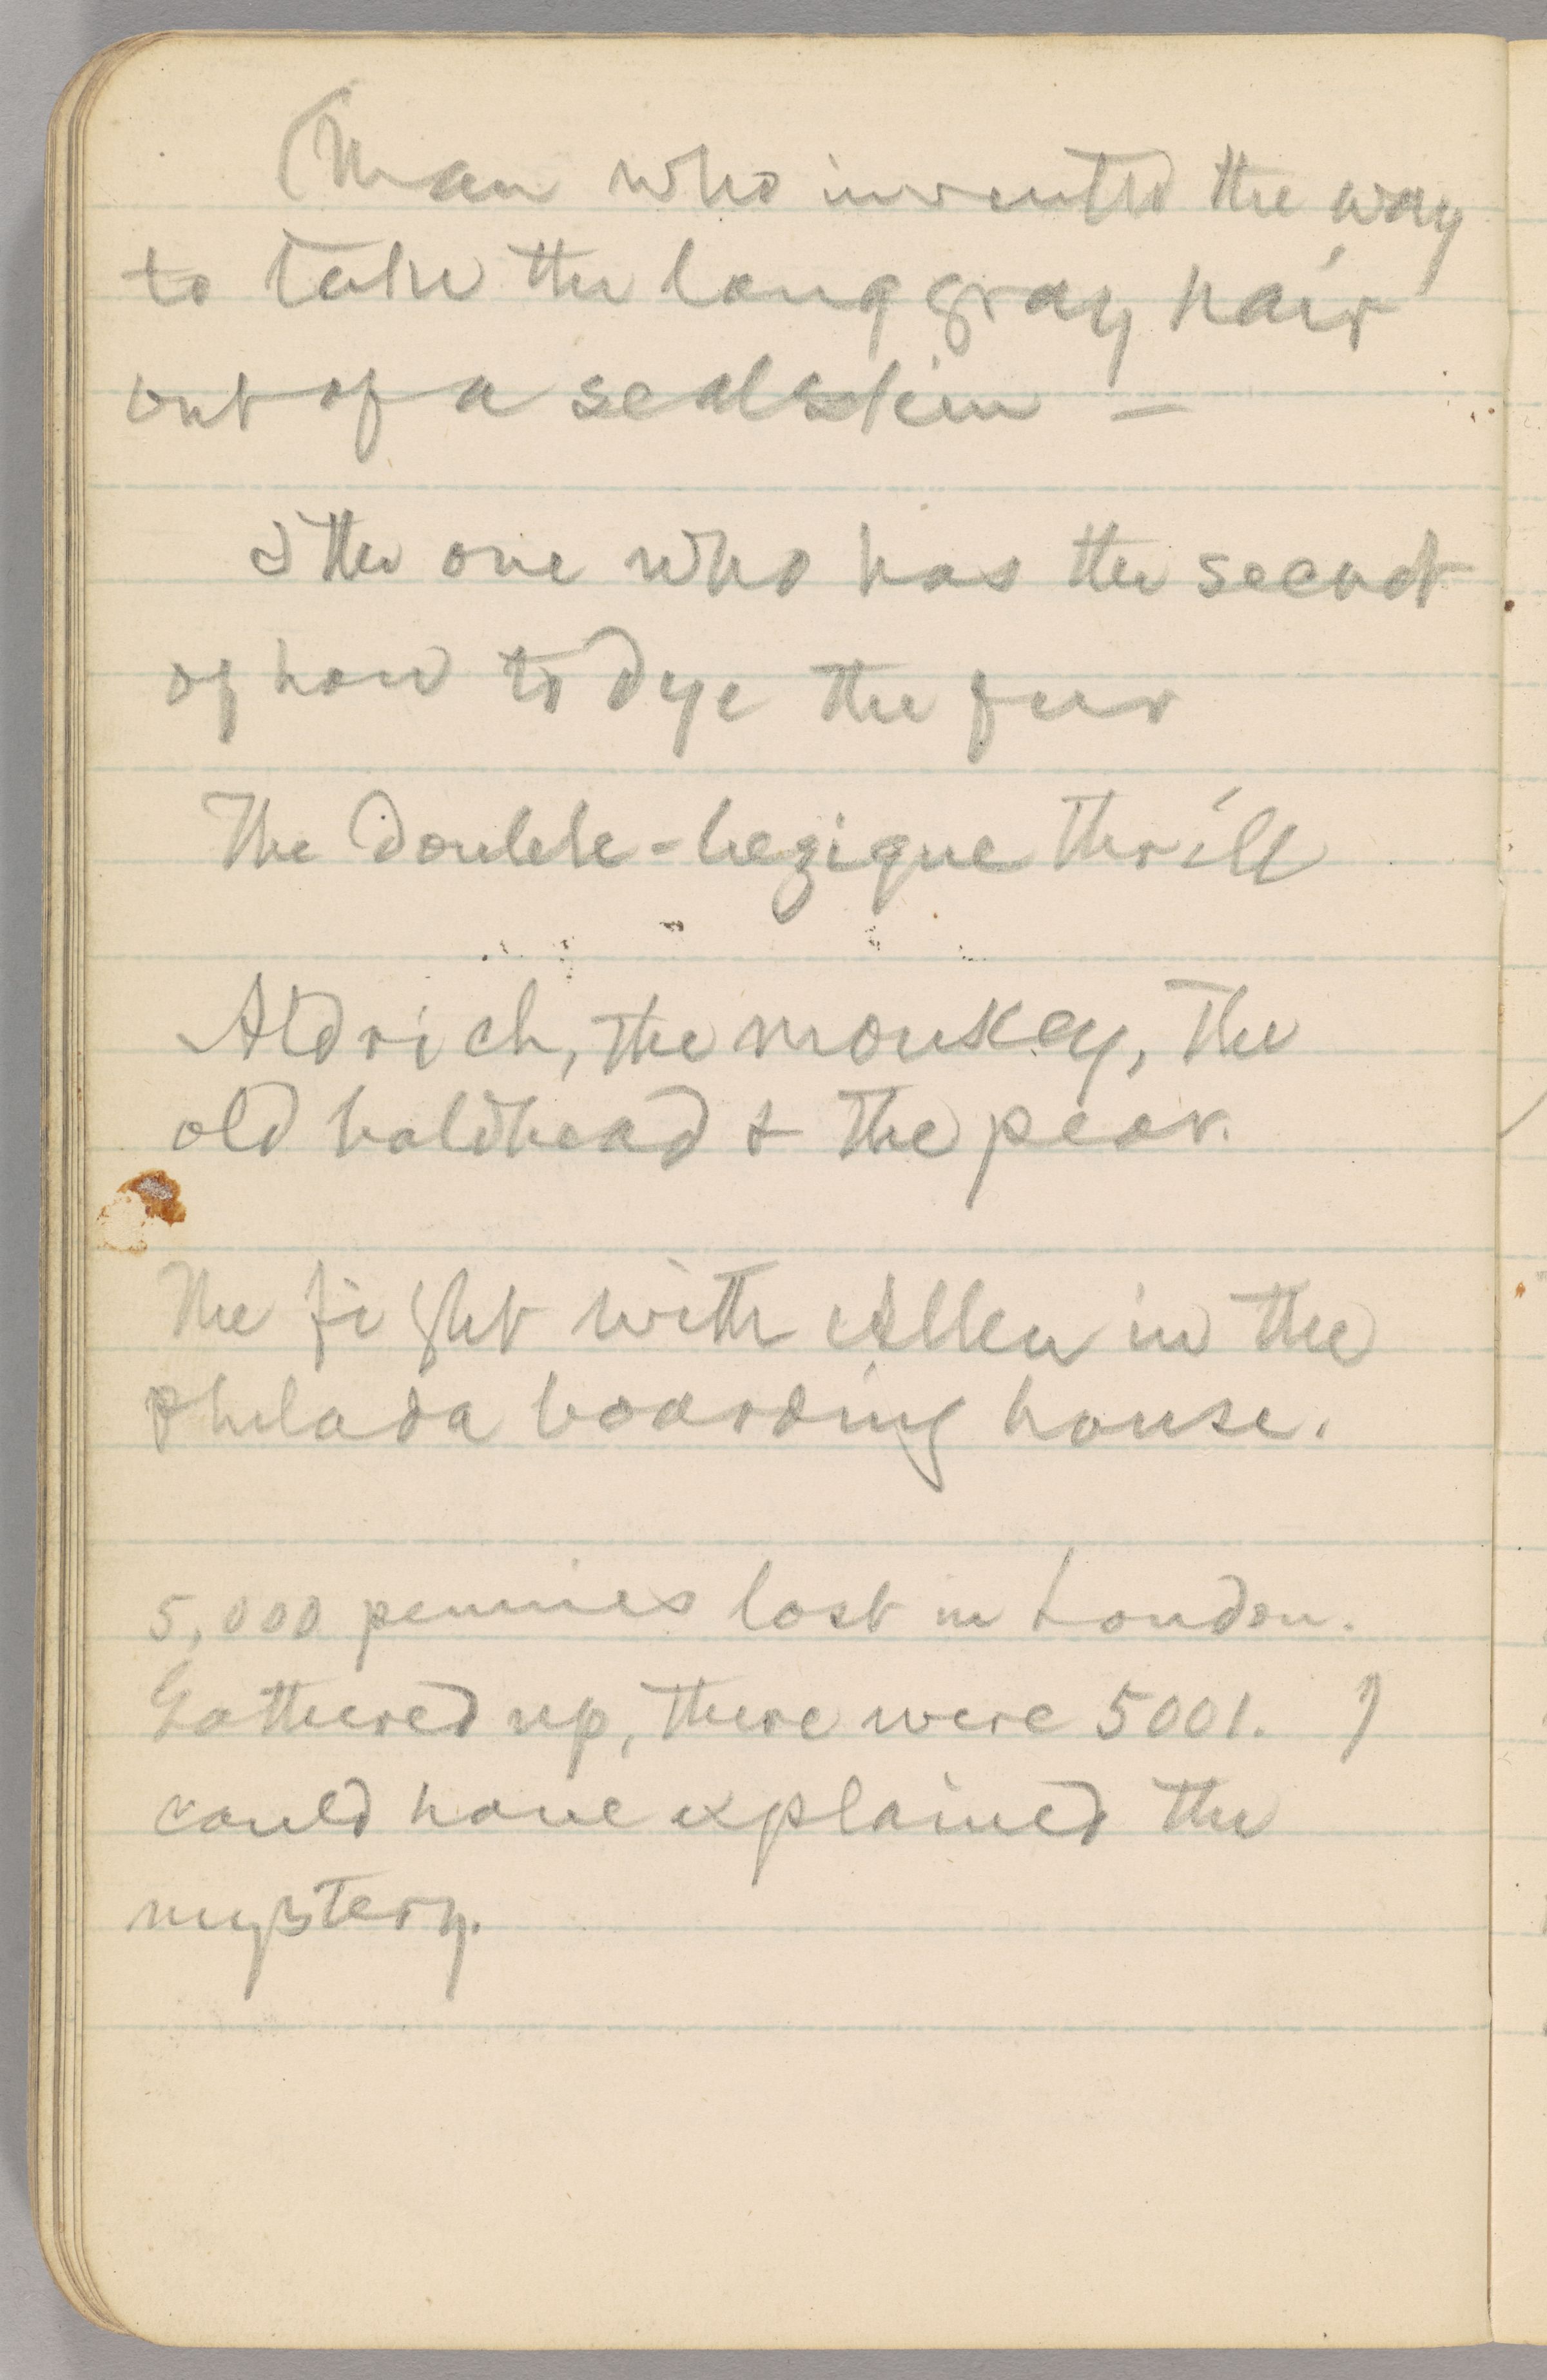 (Man who invented the way
to take the long gray hair
out of a sealskin —
& the one who has the secret
of how to dye the fur
The double-bezique thrill
Aldrich, the monkey, the
old baldhead & the pear.
The fight with Allen in the
Philada boarding house.
5,000 pennies lost in London.
Gathered up, there were 5001. I
could have explained the
mystery.